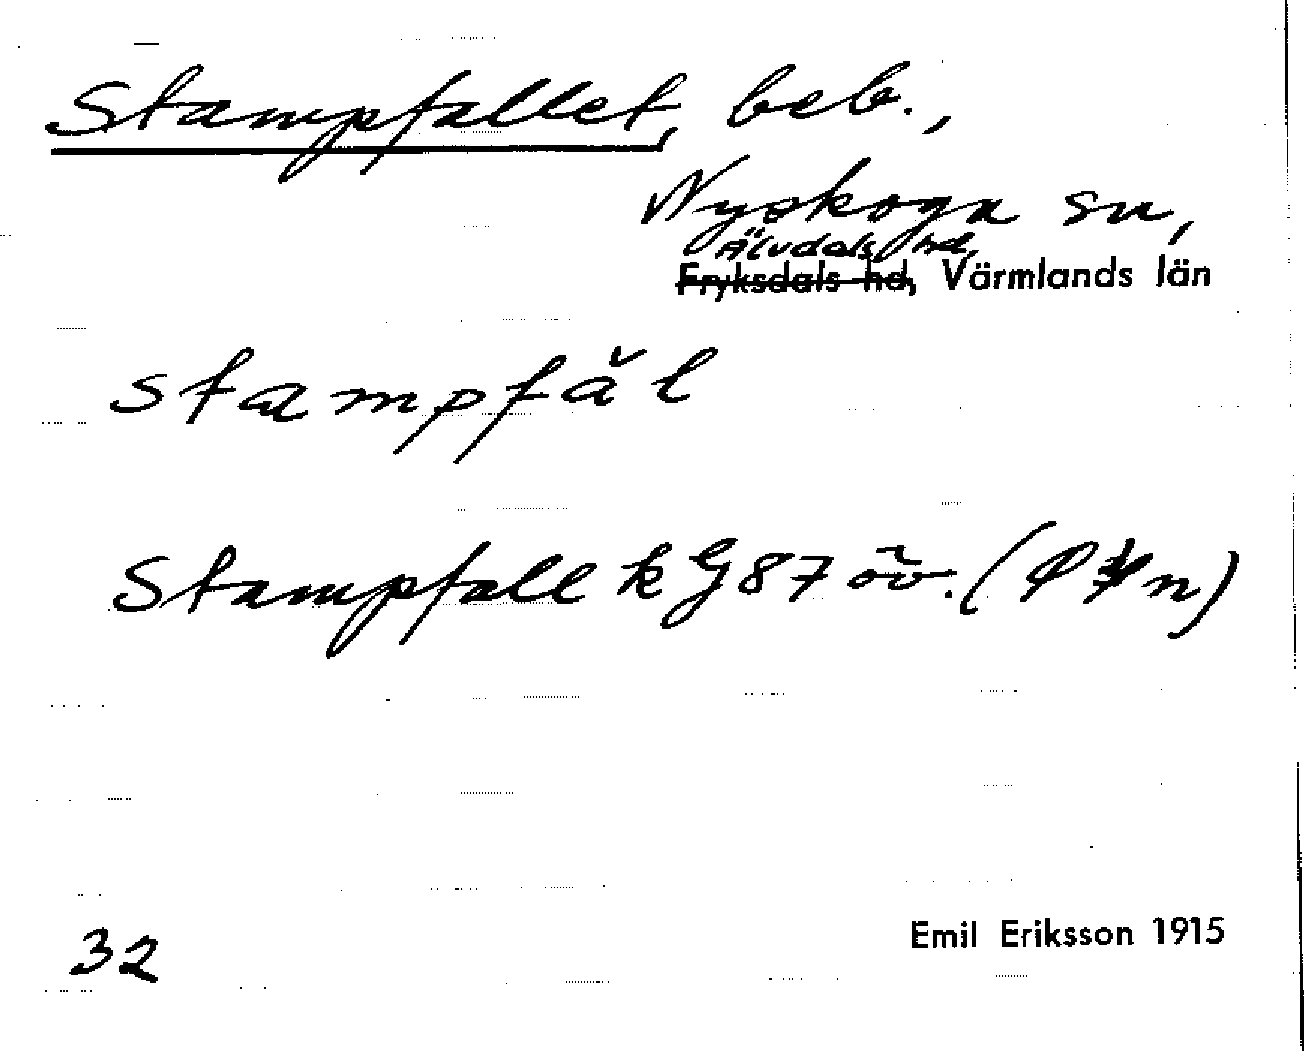 Stampfallet, beb.,
Nyskoga sn,
Älvdals hd,
Fryksdals hd, Värmlands län
stampfăl
Stampfall k G 87 öv.
32
Emil Eriksson 1915